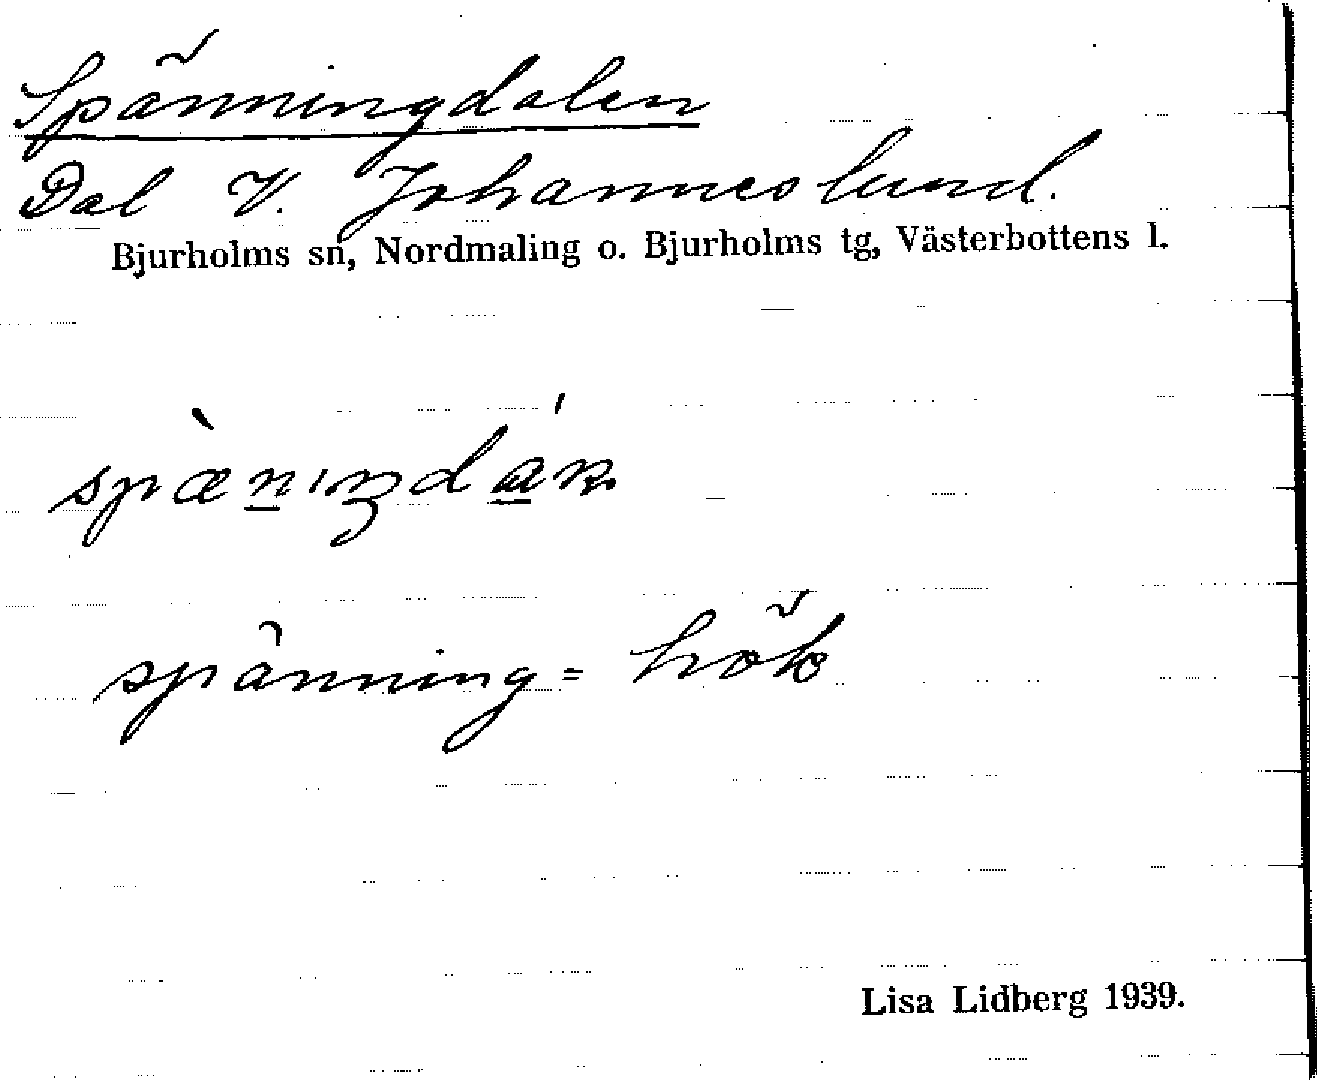 Spänningdalen
Dal V. Johanneslund.
Bjurholms sn, Nordmaling o. Bjurholms tg, Västerbottens l.
spänning = hök
Lisa Lidberg 1939.